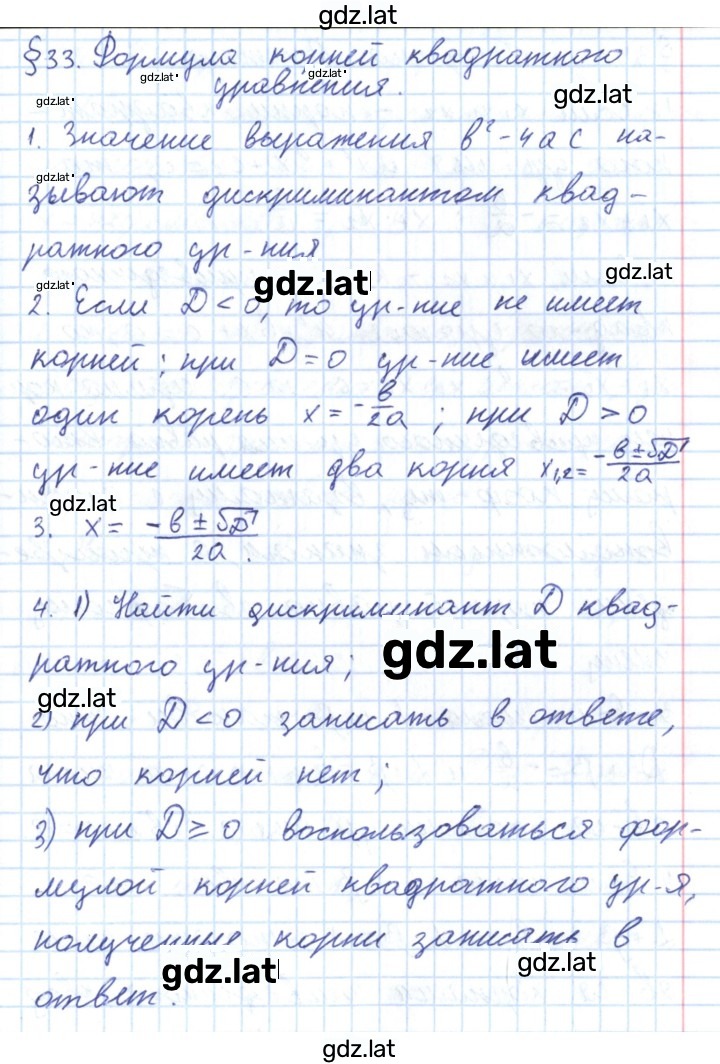 gdz.lat
§33. Формула корней квадратного
gdz.lat
gdz.lat
уравнения.
gdz.lat
gdz.lat
1. Значение выражения b² - 4ac на-
gdz.lat
зывают дискриминантом квад-
ратного ур-ния
gdz.lat
gdz.lat
gdz.lat
2. Если D < 0, то ур-ние не имеет
корней; при D = 0 ур-ние имеет
один корень x = -b/2a ; при D > 0
ур-ние имеет два корня x1,2 = (-b ± √D)/2a
gdz.lat
3. x = (-b ± √D)/2a .
4. 1) Найти дискриминант D квад-
ратного ур-ния;
gdz.lat
gdz.lat
2) при D < 0 записать в ответе,
что корней нет;
3) при D ≥ 0 воспользоваться фор-
мулой корней квадратного ур-я,
полученные корни записать в
gdz.lat
gdz.lat
ответ.
gdz.lat